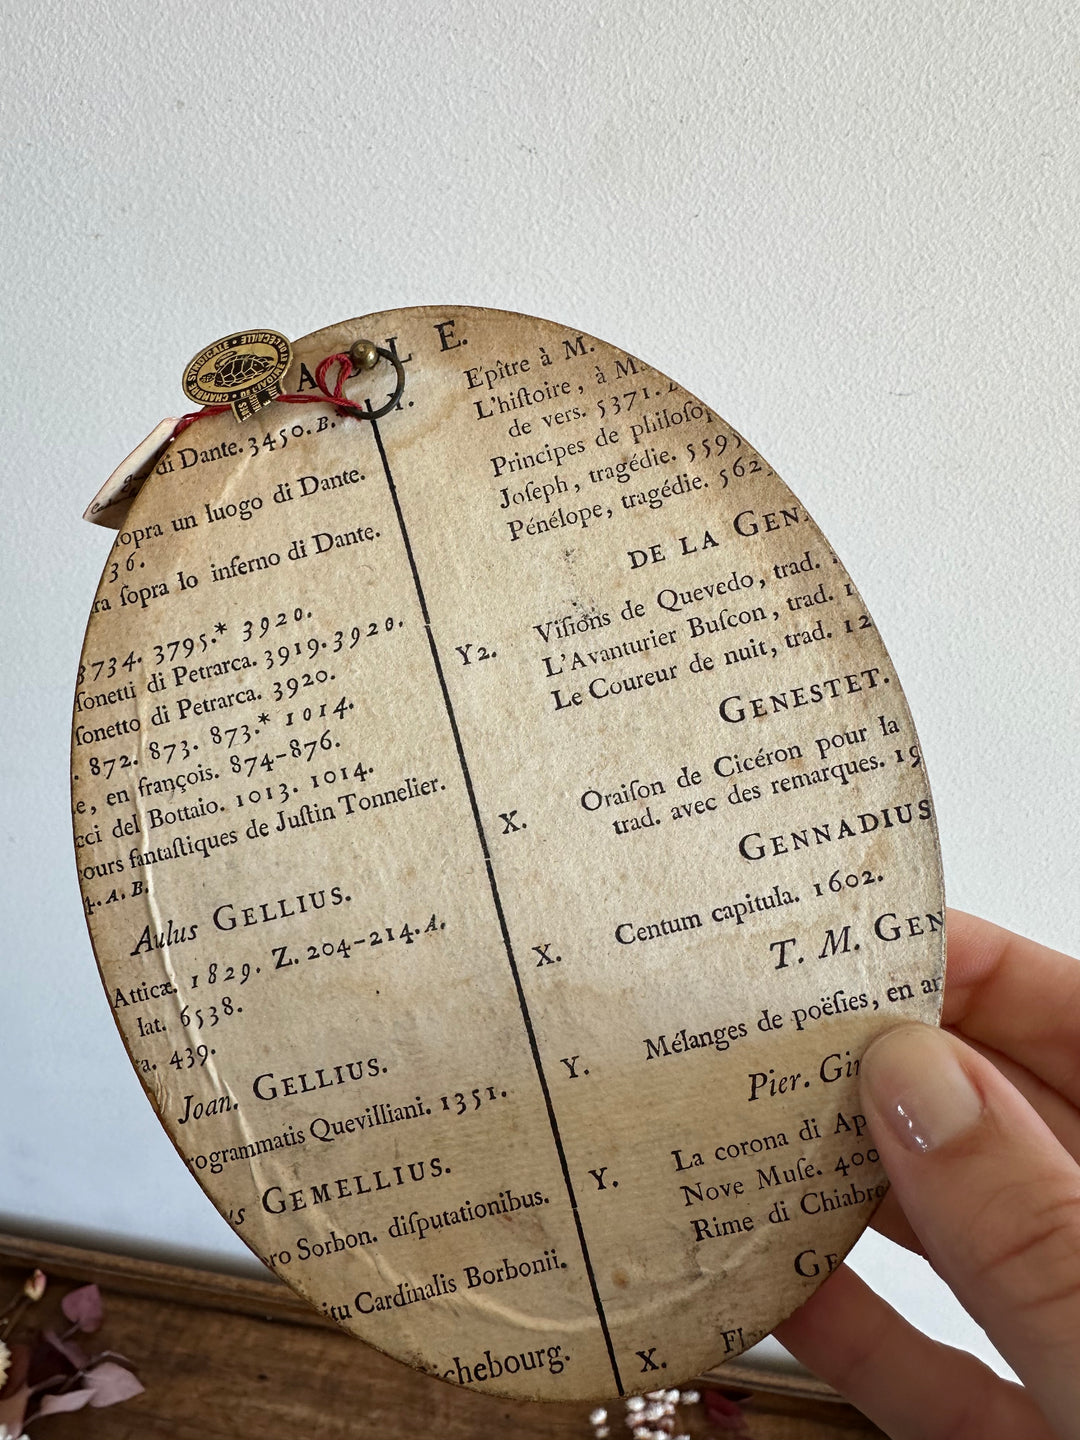 CHAMBRE SYNDICALE
ECAILLE
LE.
Y.
di Dante. 3450. B.
ſopra un luogo di Dante.
36.
ra ſopra lo inferno di Dante.
3734. 3795.* 3920.
ſonetti di Petrarca. 3919. 3920.
ſonetto di Petrarca. 3920.
872. 873. 873.* 1014.
e, en françois. 874-876.
cci del Bottaio. 1013. 1014.
cours fantaſtiques de Juſtin Tonnelier.
4. A. B.
Aulus GELLIUS.
Atticæ. 1829. Z. 204-214. A.
lat. 6538.
a. 439.
Joan. GELLIUS.
rogrammatis Quevilliani. 1351.
's GEMELLIUS.
ro Sorbon. diſputationibus.
itu Cardinalis Borbonii.
ichebourg.
Epître à M.
L'hiſtoire, à M.
de vers. 5371.
Principes de philoſop
Joſeph, tragédie. 559
Pénélope, tragédie. 562
DE LA GEN
Y2. Viſions de Quevedo, trad.
L'Avanturier Buſcon, trad. 1
Le Coureur de nuit, trad. 12
GENESTET.
X. Oraiſon de Cicéron pour la
trad. avec des remarques. 19
GENNADIUS
X. Centum capitula. 1602.
T. M. GEN
Y. Mélanges de poëſies, en ar
Pier. Gir
Y. La corona di Ap
Nove Muſe. 400
Rime di Chiabre
GE
X. Fl